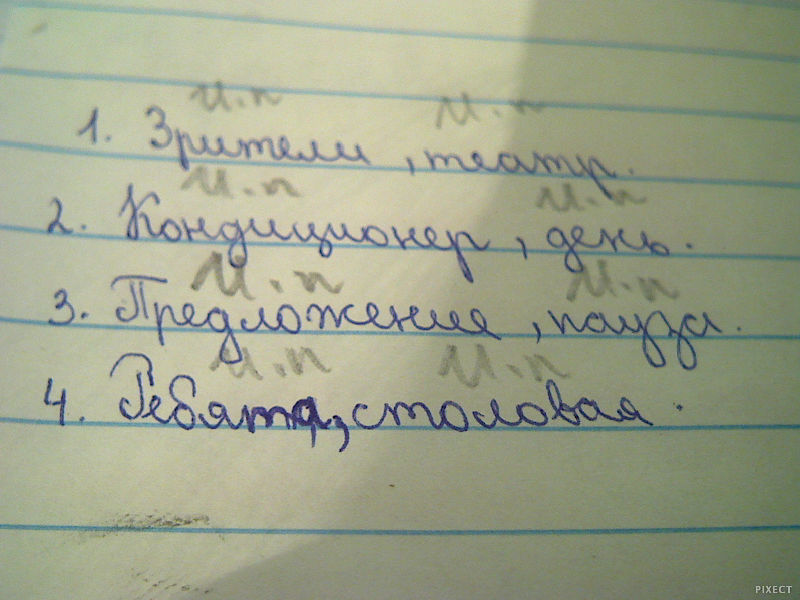 и.п и.п
1. Зрители, театр.
и.п и.п
2. Кондиционер, день.
и.п и.п
3. Предложение, пауза.
и.п и.п
4. Ребята, столовая.
PIXECT